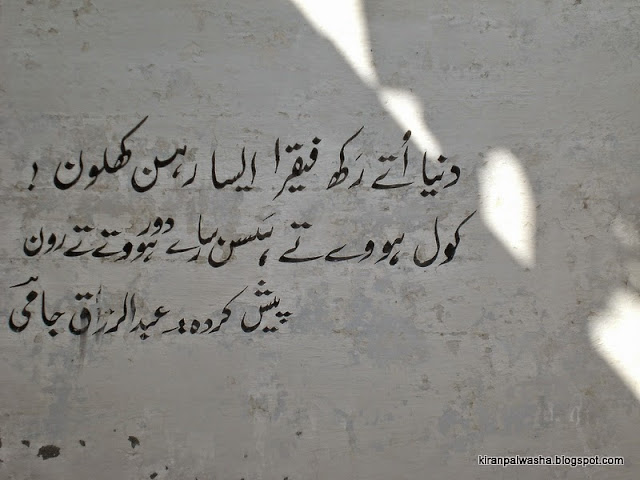 دنیا اُتے رَکھ فیقرا ایسا رہسن کھلون !
کول ہووے تے ہَسن سارے دور ہووتے تے رون
پیش کردہ:۔ عبدالرزاق جامؔی
kiranpalwasha.blogspot.com